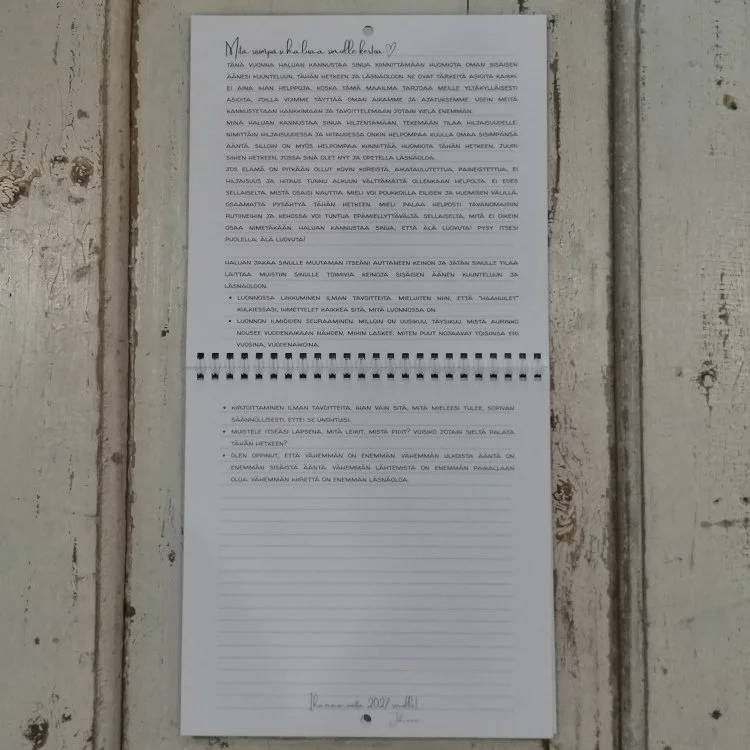 Mitä sisimpäsi haluaa sinulle kertoa ♡
TÄNÄ VUONNA HALUAN KANNUSTAA SINUA KIINNITTÄMÄÄN HUOMIOTA OMAN SISÄISEN
ÄÄNESI KUUNTELUUN, TÄHÄN HETKEEN JA LÄSNÄOLOON. NE OVAT TÄRKEITÄ ASIOITA KAIKKI.
EI AINA IHAN HELPPOJA, KOSKA TÄMÄ MAAILMA TARJOAA MEILLE YLTÄKYLLÄISESTI
ASIOITA, JOILLA VOIMME TÄYTTÄÄ OMAN AIKAMME JA AJATUKSEMME. USEIN MEITÄ
KANNUSTETAAN HANKKIMAAN JA TAVOITTELEMAAN JOTAIN VIELÄ ENEMMÄN.
MINÄ HALUAN KANNUSTAA SINUA HILJENTÄMÄÄN, TEKEMÄÄN TILAA HILJAISUUDELLE.
NIMITTÄIN HILJAISUUDESSA JA HITAUDESSA ONKIN HELPOMPAA KUULLA OMAA SISIMPÄNSÄ
ÄÄNTÄ. SILLOIN ON MYÖS HELPOMPAA KIINNITTÄÄ HUOMIOTA TÄHÄN HETKEEN, JUURI
SIIHEN HETKEEN, JOSSA SINÄ OLET NYT JA OPETELLA LÄSNÄOLOA.
JOS ELÄMÄ ON PITKÄÄN OLLUT KOVIN KIIREISTÄ, AIKATAULUTETTUA, PAINEISTETTUA, EI
HILJAISUUS JA HITAUS TUNNU ALKUUN VÄLTTÄMÄTTÄ OLLENKAAN HELPOLTA. EI EDES
SELLAISELTA, MISTÄ OSAISI NAUTTIA. MIELI VOI POUKKOILLA EILISEN JA HUOMISEN VÄLILLÄ,
OSAAMATTA PYSÄHTYÄ TÄHÄN HETKEEN. MIELI PALAA HELPOSTI TAVANOMAISIIN
RUTIINEIHIN JA KEHOSSA VOI TUNTUA EPÄMIELLYTTÄVÄLTÄ, SELLAISELTA, MITÄ EI OIKEIN
OSAA NIMETÄKÄÄN. HALUAN KANNUSTAA SINUA, ETTÄ ÄLÄ LUOVUTA! PYSY ITSESI
PUOLELLA, ÄLÄ LUOVUTA!
HALUAN JAKAA SINULLE MUUTAMAN ITSEÄNI AUTTANEEN KEINON JA JÄTÄN SINULLE TILAA
LAITTAA MUISTIIN SINULLE TOIMIVIA KEINOJA SISÄISEN ÄÄNEN KUUNTELUUN JA
LÄSNÄOLOON.
• LUONNOSSA LIIKKUMINEN ILMAN TAVOITTEITA. MIELUITEN NIIN, ETTÄ "HAAHUILET"
KULKIESSASI, IHMETTELET KAIKKEA SITÄ, MITÄ LUONNOSSA ON.
• LUONNON ILMIÖIDEN SEURAAMINEN. MILLOIN ON UUSIKUU, TÄYSIKUU, MISTÄ AURINKO
NOUSEE VUODENAIKAAN NÄHDEN, MIHIN LASKEE. MITEN PUUT NOJAAVAT TOISIINSA ERI
VUOSINA, VUODENAIKOINA.
• KIRJOITTAMINEN ILMAN TAVOITTEITA. IHAN VAIN SITÄ, MITÄ MIELEESI TULEE, SOPIVAN
SÄÄNNÖLLISESTI, ETTEI SE UNOHTUISI.
• MUISTELE ITSEÄSI LAPSENA, MITÄ LEIKIT, MISTÄ PIDIT? VOISIKO JOTAIN SIELTÄ PALATA
TÄHÄN HETKEEN?
• OLEN OPPINUT, ETTÄ VÄHEMMÄN ON ENEMMÄN. VÄHEMMÄN ULKOISTA ÄÄNTÄ ON
ENEMMÄN SISÄISTÄ ÄÄNTÄ. VÄHEMMÄN LÄHTEMISTÄ ON ENEMMÄN PAIKALLAAN
OLOA. VÄHEMMÄN KIIRETTÄ ON ENEMMÄN LÄSNÄOLOA.
Ihanaa vuotta 2027 sinulle!